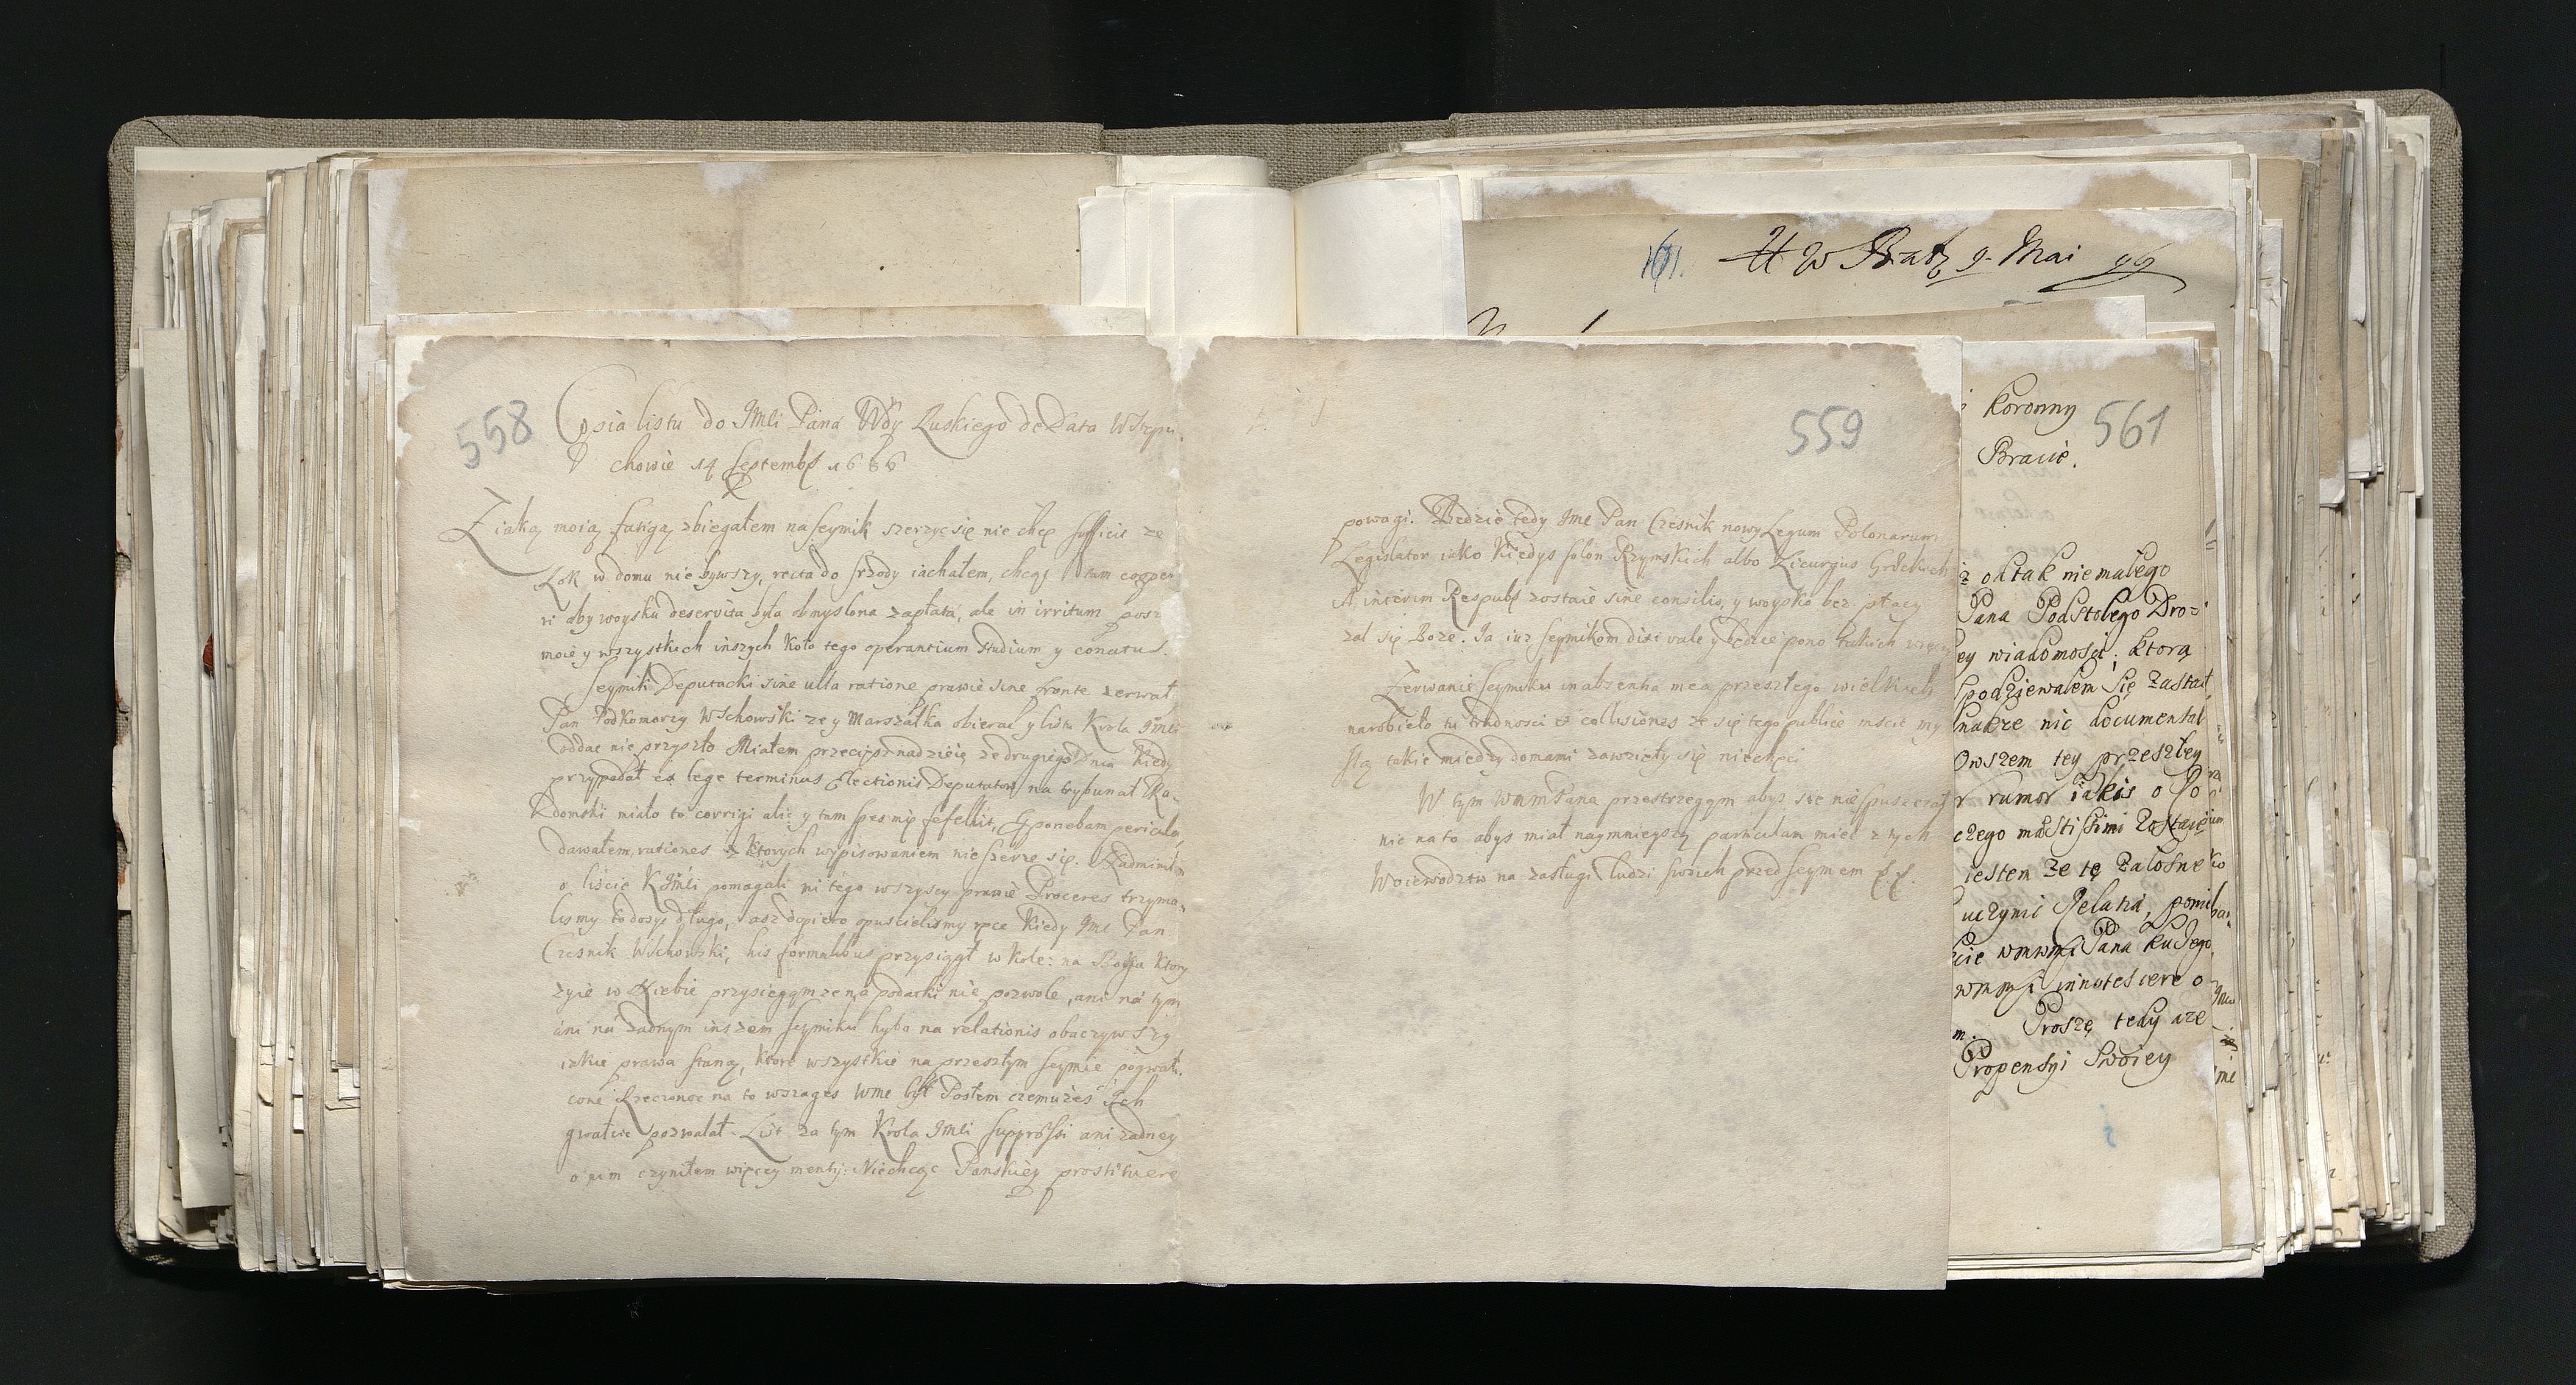 558
Copia listu do JMci Pana Wdy Ruskiego de Data W Stępu-
chowie 14 Septembr 1686
Z iaką moią fatigą zbiegałem na Seymik szerzyc się nie chcę sufficit ze
Rok w domu nie bywszy, recta do srzody iachałem, chcąc tam
ri aby woysku deservita była obmyslona zapłata, ale in irritum posz
moie y wszystkich inszych koło tego operantium studium y conatus.
Seymik Deputacki sine ulla ratione prawie sine fronte zerwał
Pan Podkomorzy Wschowski ze y Marszałka obierac y listu Krola JMci
oddac nie przyszło Miałem przecięsz nadzieię ze drugiego Dnia kiedy
przypadał ex lege terminus Electionis Deputatow na trybunał Ra-
domski miało to corrigi alic y tum spes mię fefellit, Exponebam pericula,
dawałem rationes z ktorych wypisowaniem nie szerze się.
o liscie KJMci pomagali mi tego wszyscy prawie Proceres trzyma-
lismy to dosyc długo, asz dopiero opuscielismy ręce kiedy Jme Pan
Czesnik Wschowski, his formalibus przysiągł w kole: na Boga ktory
zyie w Niebie przysięgam ze na podatki nie pozwole, ani na tym
ani na zadnym inszem seymiku hyba na relationis obaczywszy
iakie prawa staną, ktore wszystkie na przeszłym seymie pogwał-
cone Rzeczono na to wszages Wmc był Posłem czemużeś Ich
gwałcic pozwalał. List za tym Krola JMci suppressi ani zadney
o nim czyniłem więcey mentij. Niechcąc Panskiey prostituere
559
powagi. Bedzie tedy Jme Pan Czesnik nowy Legum Polonarum
Legislator iako kiedys Solon Rzymskich albo Licurgus Greckich
A interim Respubl zostaie sine consilio, y woysko bez płacy
zal się Boze. Ja iuz seymikom dixi vale y bedzie pono takich
Zerwanie Seymiku in absentia mea przeszłego wielkich
narobieło tu trudnosci et collisiones ze się tego publice mscic
slą takie miedzy domami zawzieły się niechęci
W tym WmmPana przestrzegam abys sie nie spuszczał
nic na to abys miał naymnieyszą particulam miec z tych
Woiewodztw na zasługi ludzi swoich przed seymem
161. W Bratz 9. Mai 99
Koronny
561
Bracie.
ok tak niemałego
Pana Podstolego Dro-
ey wiadomości; ktorą
spodziewałem Się Zastał
nakze nic documental
Owszem tey przeszłey
rumor iakis o Po
czego mæstissimi Zostaię
iestem Ze tę Załosne
uczymi Relatią, pomi
Pana kuJego,
innotescere o
m. Proszę tedy aze
Propensyi Swoiey